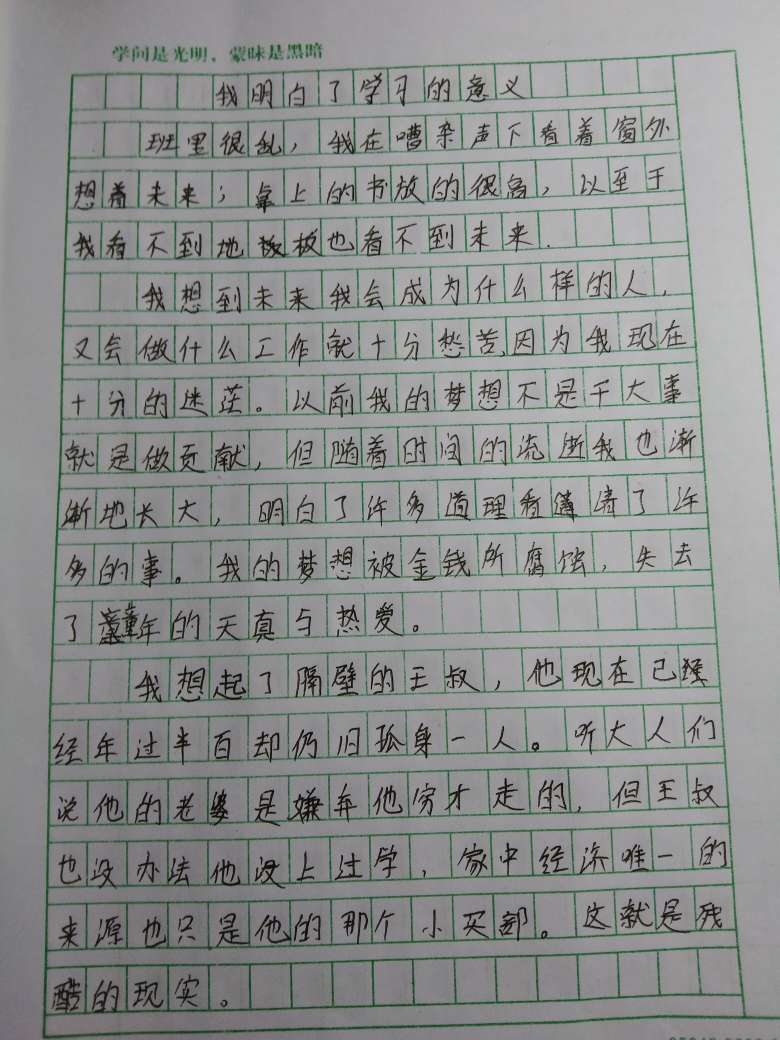 学问是光明，蒙昧是黑暗
我明白了学习的意义
班里很乱，我在嘈杂声下看着窗外
想着未来；桌上的书放的很高，以至于
我看不到地板也看不到未来.
我想到未来我会成为什么样的人，
又会做什么工作就十分愁苦,因为我现在
十分的迷茫。以前我的梦想不是干大事
就是做贡献，但随着时间的流逝我也渐
渐地长大，明白了许多道理看清了许
多的事。我的梦想被金钱所腐蚀，失去
了童年的天真与热爱。
我想起了隔壁的王叔，他现在已
经年过半百却仍旧孤身一人。听大人们
说他的老婆是嫌弃他穷才走的，但王叔
也没办法他没上过学，家中经济唯一的
来源也只是他的那个小买部。这就是残
酷的现实。